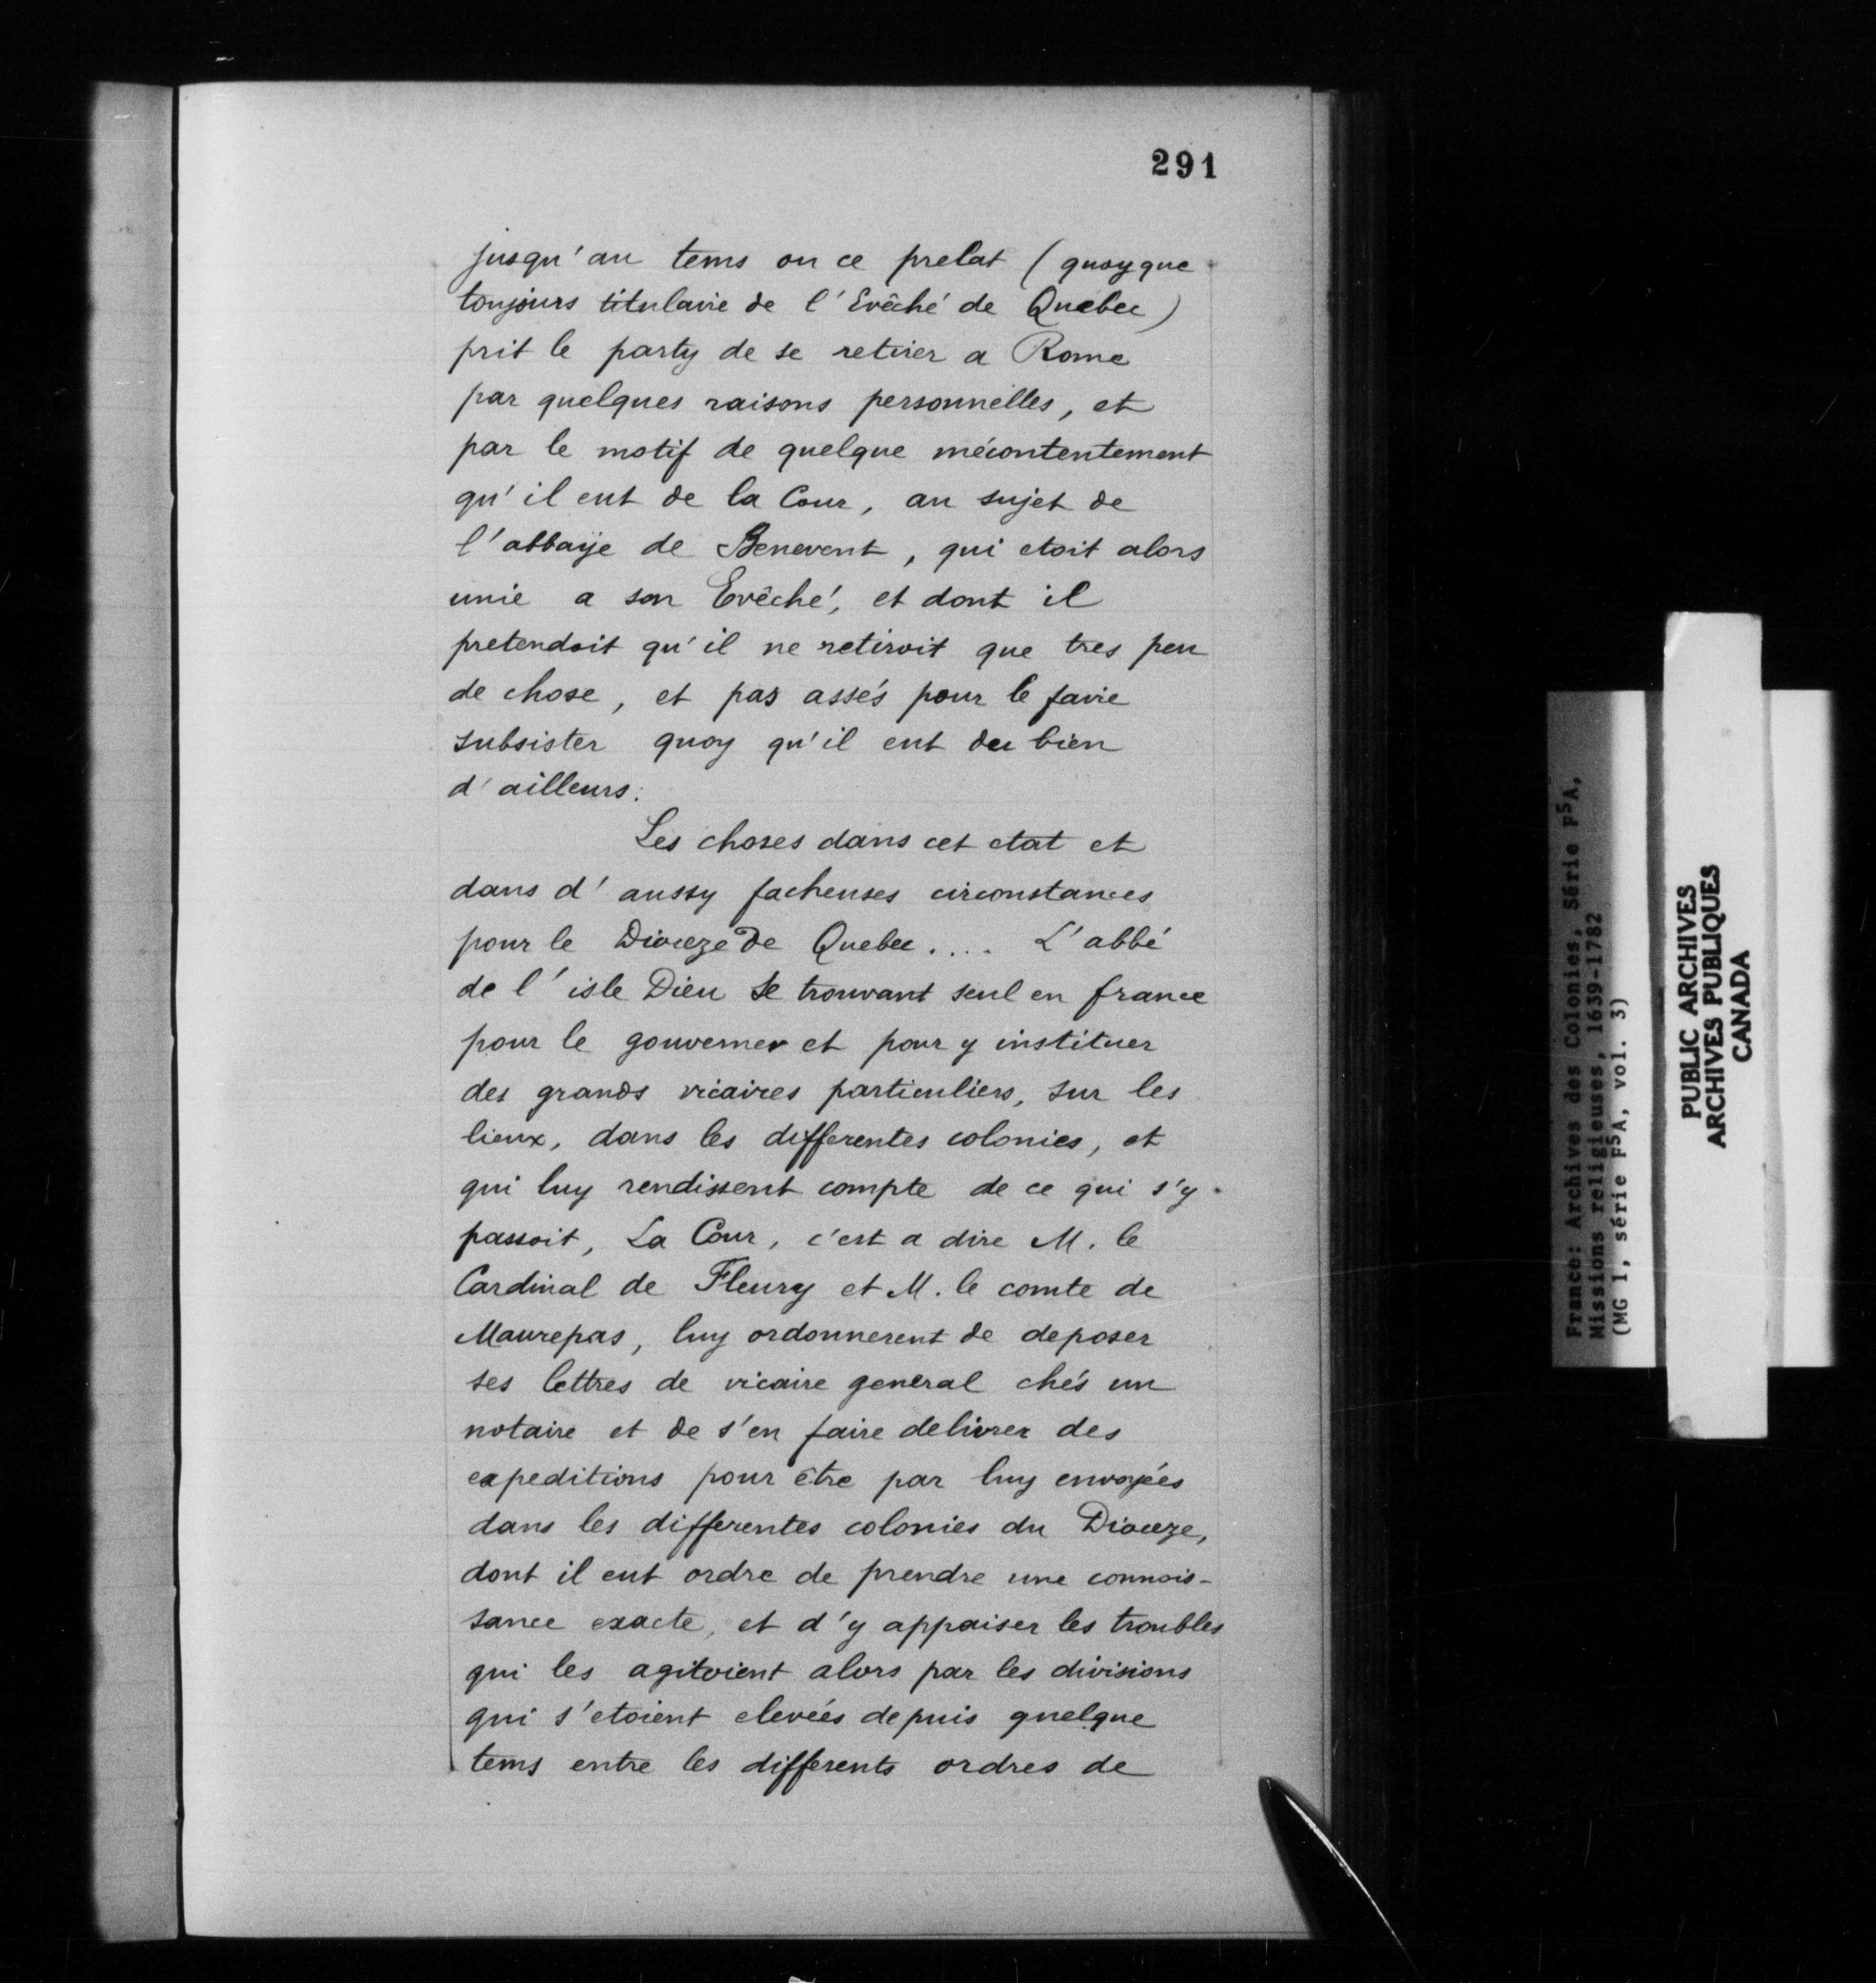 291
jusqu'au tems ou ce prelat (quoyque
toujours titulaire de l'Evêché de Quebec)
prit le party de se retirer a Rome
par quelques raisons personnelles, et
par le motif de quelque mécontentement
qu'il eut de la Cour, au sujet de
l'abbaÿe de Benevent, qui etoit alors
unie a son Evêché, et dont il
pretendoit qu'il ne retiroit que tres peu
de chose, et pas assés pour le faire
subsister quoy qu'il eut du bien
d'ailleurs.
Les choses dans cet etat et
dans d'aussy facheuses circonstances
pour le Dioceze de Quebec.... L'abbé
de l'isle Dieu se trouvant seul en france
pour le gouverner et pour y instituer
des grands vicaires particuliers, sur les
lieux, dans les differentes colonies, et
qui luy rendissent compte de ce qui s'y
passoit, La Cour, c'est a dire M. le
Cardinal de Fleury et M. le comte de
Maurepas, luy ordonnerent de deposer
ses lettres de vicaire general chés un
notaire et de s'en faire delivrer des
expeditions pour être par luy envoyées
dans les differentes colonies du Dioceze,
dont il eut ordre de prendre une connois-
sance exacte, et d'y appaiser les troubles
qui les agitoient alors par les divisions
qui s'etoient elevées depuis quelque
tems entre les differents ordres de
France: Archives des Colonies, Série F5A,
Missions religieuses, 1639-1782
(MG 1, série F5A, vol. 3)
PUBLIC ARCHIVES
ARCHIVES PUBLIQUES
CANADA